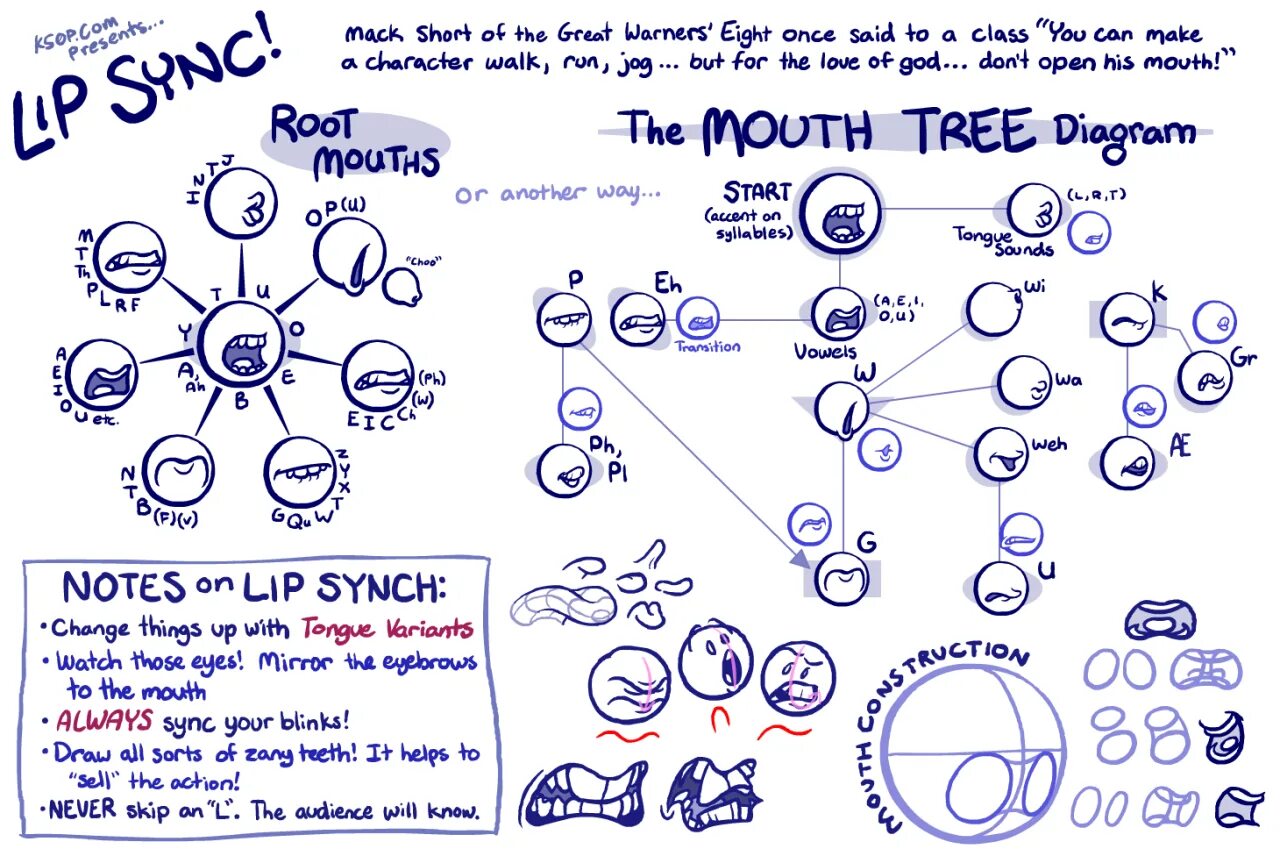 KSOP.COM
Presents...
LIP SYNC!
Mack Short of the Great Warners' Eight once said to a class "You can make
a character walk, run, jog... but for the love of god... don't open his mouth!"
ROOT
MOUTHS
I N T J
O P (U)
"Choo"
M T Th P L R F
T U O E B A, Ah Y
A E I O U etc.
E I C Ch (W) (Ph)
N T B (F) (V)
G Qu W T X Y Z
The MOUTH TREE Diagram
Or another way...
START
(accent on
syllables)
(L, R, T)
Tongue
Sounds
P
Eh
Transition
(A, E, I,
O, U)
Vowels
Wi
K
Gr
W
Wa
Weh
Æ
Ph,
Pl
G
U
NOTES on LIP SYNCH:
• Change things up with Tongue Variants
• Watch those eyes! Mirror the eyebrows
to the mouth
• ALWAYS sync your blinks!
• Draw all sorts of zany teeth! It helps to
"sell" the action!
• NEVER skip an "L". The audience will know.
MOUTH CONSTRUCTION